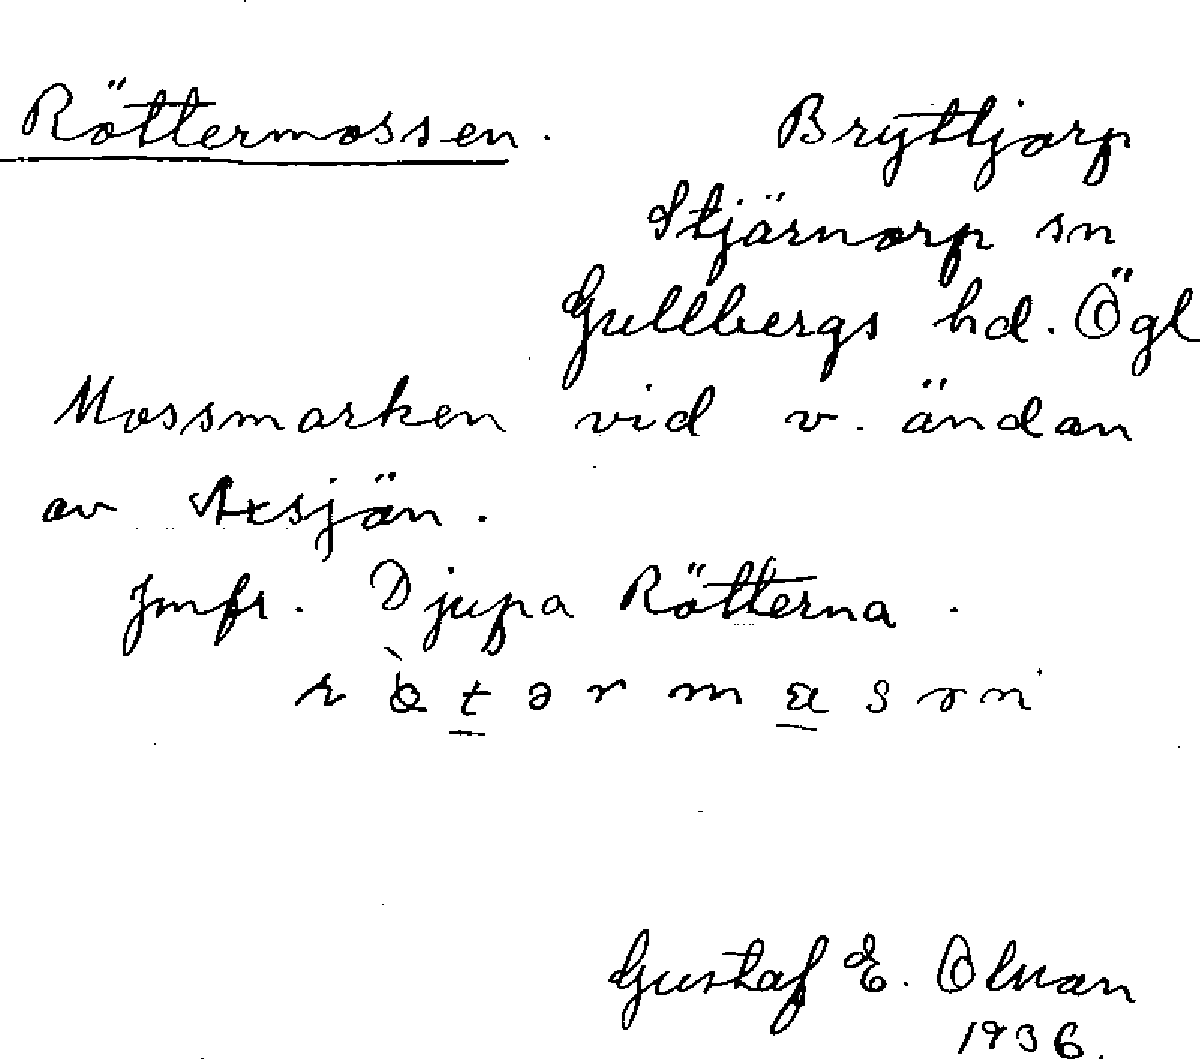 Röttermossen. Bryttjorp
Stjärnorp sn
Gullbergs hd. Ögl
Mossmarken vid v. ändan
av Axsjön.
Jmfr. Djupa Rötterna.
Gustaf E. Olman
1936.